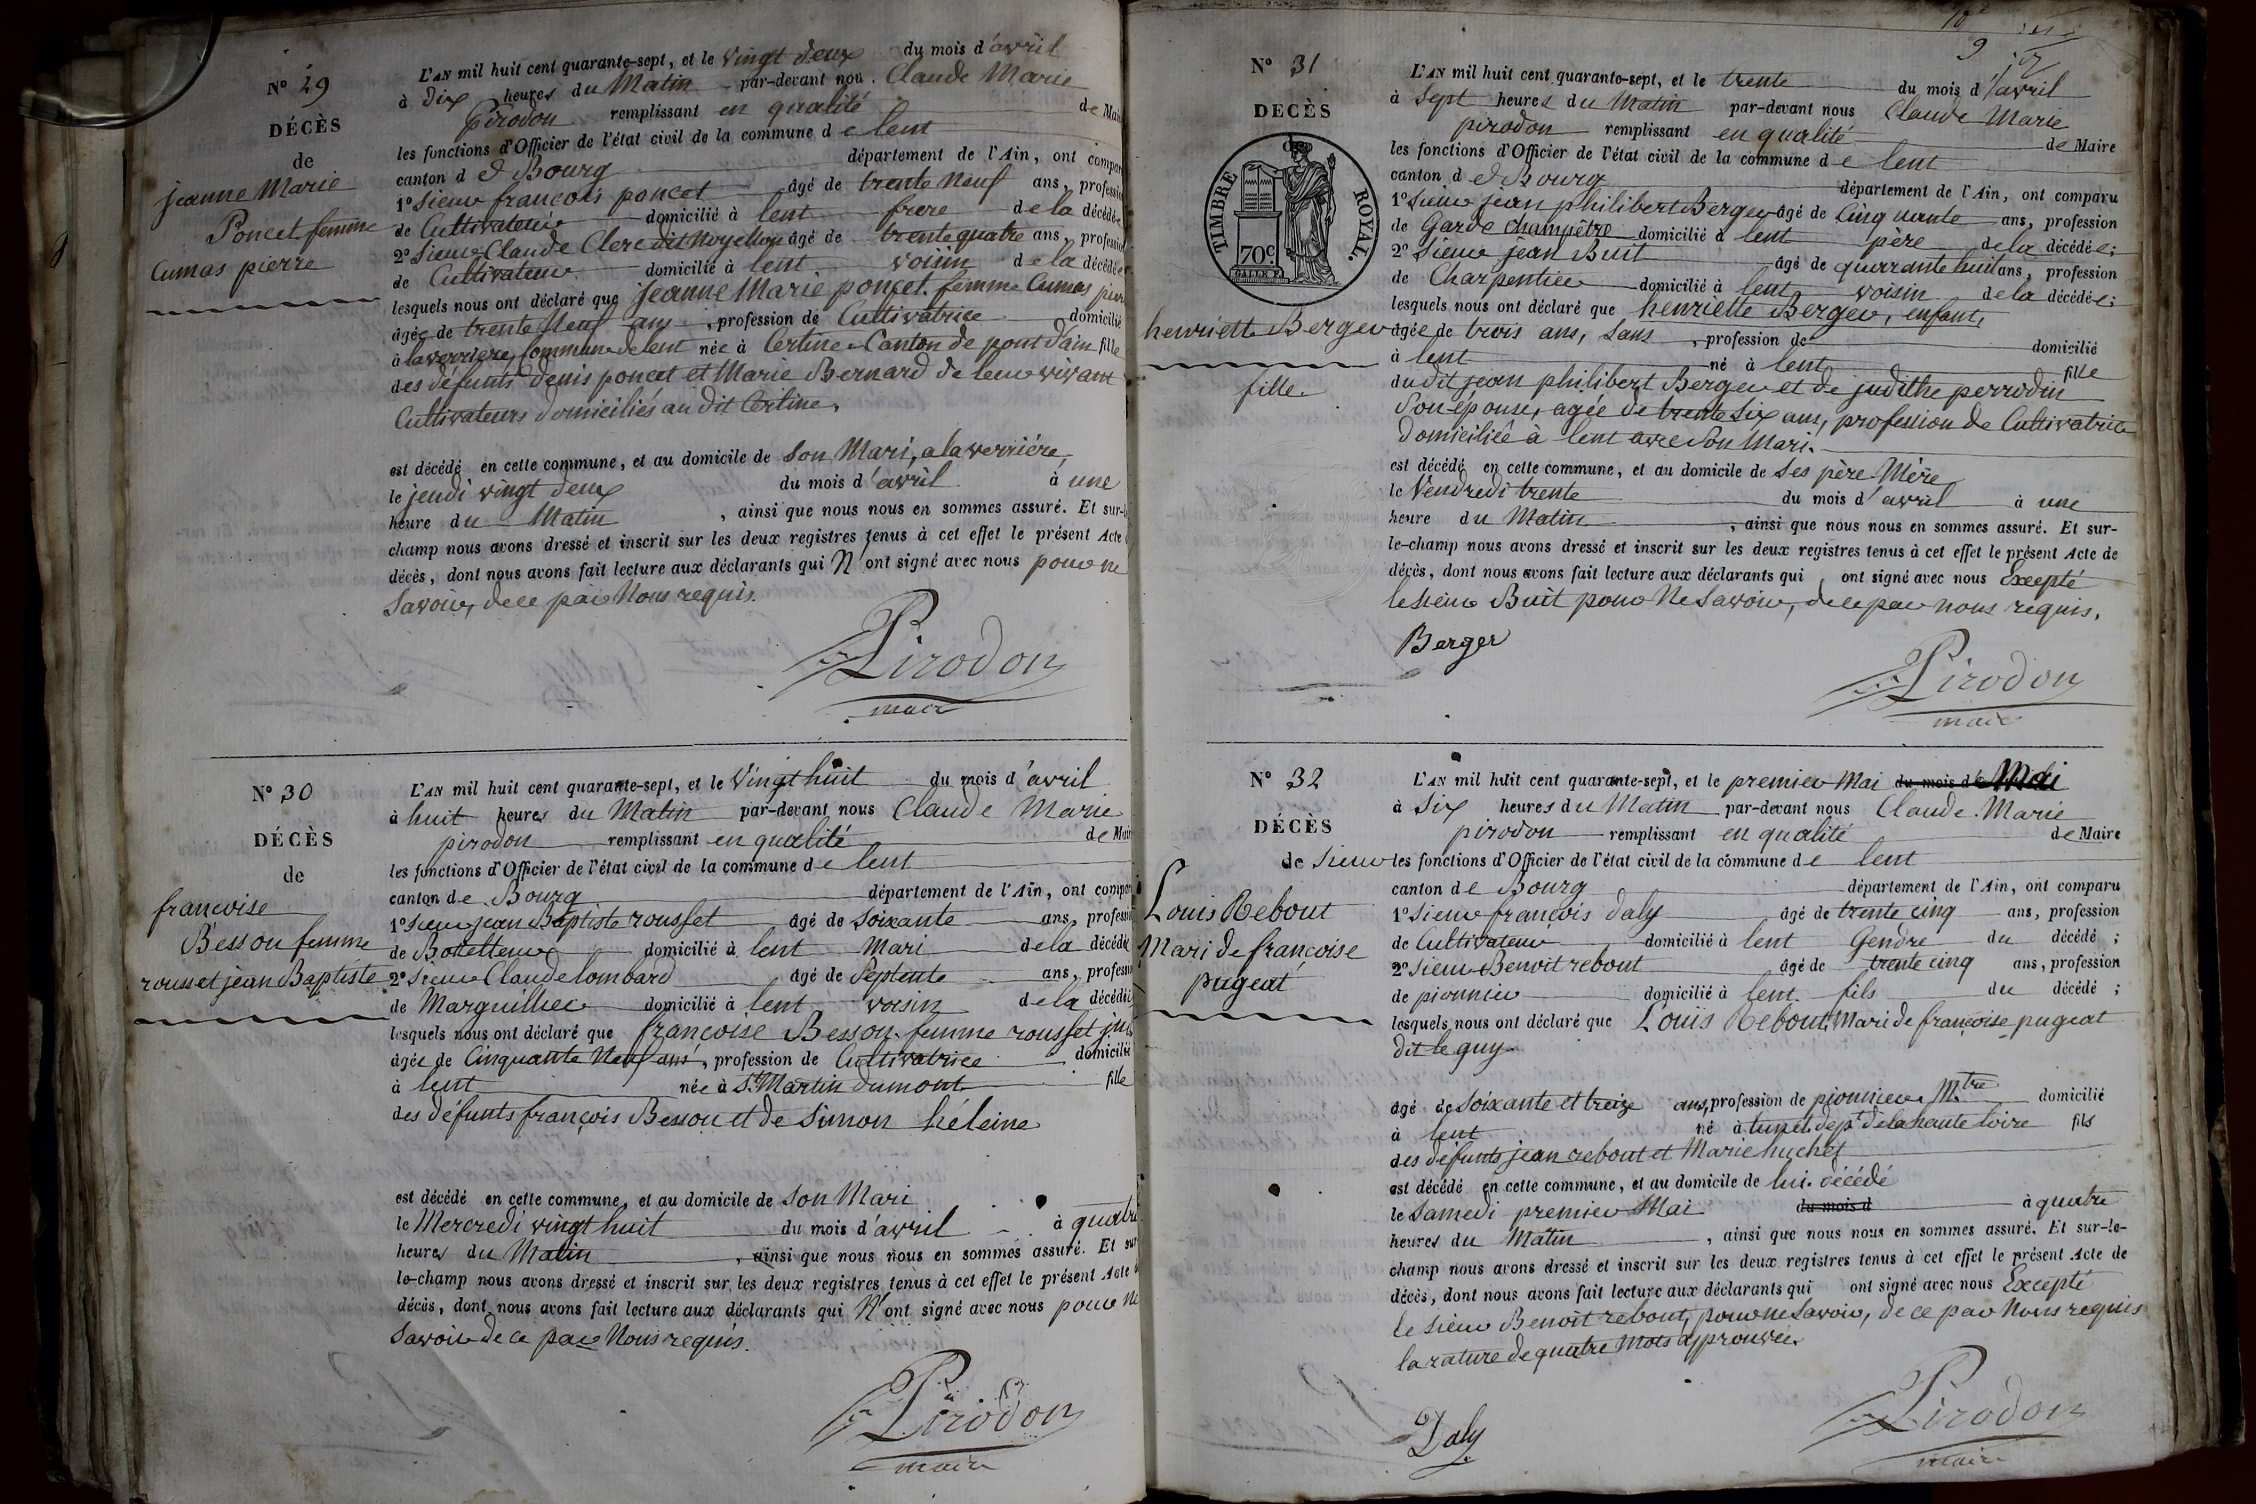 N° 29
DÉCÈS
de
jeanne Marie
Poncet femme
Cumas pierre
L'AN mil huit cent quarante-sept, et le vingt deux du mois d'avril
à dix heures du Matin par-devant nou. Claude Marie
Pirodon remplissant en qualité de Mai
les fonctions d'Officier de l'état civil de la commune de lent
canton d e Bourg département de l'Ain, ont compar
1° Sieur françois poncet âgé de trente Neuf ans, professio
de Cultivateur domicilié à lent frere de la décédée
2° Sieur Claude Clerc dit Noyellon âgé de trente quatre ans, professio
de Cultivateur domicilié à lent voisin de la décédée
lesquels nous ont déclaré que jeanne Marie poncet femme Cumas pier
âgée de trente Neuf ans, profession de Cultivatrice domicilié
à laverriere, Commune de lent née à Certine Canton de pont d'ain fille
des défunts denis poncet et Marie Bernard de leur vivant
Cultivateurs domiciliés au dit Certine.
est décédé en cette commune, et au domicile de Son Mari, a la verriére,
le jeudi vingt deux du mois d'avril à une
heure du Matin, ainsi que nous nous en sommes assuré. Et sur-
champ nous avons dressé et inscrit sur les deux registres tenus à cet effet le présent Acte
décès, dont nous avons fait lecture aux déclarants qui N'ont signé avec nous pour ne
Savoir, de ce par Nous requis.
Pirodon
maire
N° 30
DÉCÈS
de
francoise
Besson femme
rousset jean Baptiste
L'AN mil huit cent quarante-sept, et le Vingt huit du mois d'avril
à huit heures du Matin par-devant nous Claude Marie
pirodon remplissant en qualité de Mair
les fonctions d'Officier de l'état civil de la commune de lent
canton de Bourg département de l'Ain, ont compar
1° Sieur jean Baptiste rousset âgé de Soixante ans, professio
de Bottelleur domicilié à lent Mari de la décédée
2° Sieur Claude lombard âgé de Septente ans, professio
de Marguillier domicilié à lent voisin de la décédée
lesquels nous ont déclaré que francoise Besson femme rousset
âgée de Cinquante Neuf ans, profession de Cultivatrice domicilié
à lent née à St Martin dumont fille
des défunts françois Besson et de Simon héleine
est décédé en cette commune, et au domicile de Son Mari
le Mercredi vingt huit du mois d'avril à quatre
heures du Matin, ainsi que nous nous en sommes assuré. Et sur
le-champ nous avons dressé et inscrit sur les deux registres tenus à cet effet le présent Acte d
décès, dont nous avons fait lecture aux déclarants qui N'ont signé avec nous pour Ne
Savoir de ce par Nous requis.
Pirodon
maire
9
N° 31
DECÈS
TIMBRE ROYAL.
70c
henriette Berger
fille.
L'AN mil huit cent quarante-sept, et le trente du mois d'avril
à Sept heures du Matin par-devant nous Claude Marie
pirodon remplissant en qualité de Maire
les fonctions d'Officier de l'état civil de la commune de lent
canton d e Bourg département de l'Ain, ont comparu
1° Sieur jean philibert Berger âgé de Cinquante ans, profession
de Garde Champêtre domicilié à lent père de la décédée;
2° Sieur jean Buit âgé de quarrante huit ans, profession
de Charpentier domicilié à lent voisin de la décédée;
lesquels nous ont déclaré que henriette Berger, enfant,
âgée de trois ans, Sans, profession de domicilié
à lent né à lent fille
du dit jean philibert Berger et de judithe perrodin
Son épouse, agée de trente Six ans, profession de Cultivatrice
domiciliée à lent avec Son Mari.
est décédé en cette commune, et au domicile de Ses père Mère
le Vendredi trente du mois d'avril à une
heure du Matin, ainsi que nous nous en sommes assuré. Et sur-
le-champ nous avons dressé et inscrit sur les deux registres tenus à cet effet le présent Acte de
décès, dont nous avons fait lecture aux déclarants qui ont signé avec nous Excepté
le Sieur Buit pour Ne Savoir, de ce par nous requis.
Berger
Pirodon
maire
N° 32
DÉCÈS
de Sieur
Louis Rebout
Mari de françoise
pugeat
L'AN mil huit cent quarante-sept, et le premier Mai du mois d Mai
à Six heures du Matin par-devant nous Claude Marie
pirodon remplissant en qualité de Maire
les fonctions d'Officier de l'état civil de la commune de lent
canton de Bourg département de l'Ain, ont comparu
1° Sieur françois Daly âgé de trente cinq ans, profession
de Cultivateur domicilié à lent Gendre du décédé;
2° Sieur Benoit rebout âgé de trente cinq ans, profession
de pionnier domicilié à lent fils du décédé;
lesquels nous ont déclaré que Louis Rebout Mari de françoise pugeat
dit le guy
âgé de Soixante et treize ans, profession de pionnier Mtre domicilié
à lent né à dept de la haute loire fils
des défunts jean rebout et Marie huchet
est décédé en cette commune, et au domicile de lui. décédé
le Samedi premier Mai du mois d à quatre
heures du Matin, ainsi que nous nous en sommes assuré. Et sur-le-
champ nous avons dressé et inscrit sur les deux registres tenus à cet effet le présent Acte de
décès, dont nous avons fait lecture aux déclarants qui ont signé avec nous Excepté
le Sieur Benoit rebout, pour ne Savoir, de ce par Nous requis
la rature de quatre Mots approuvée.
Daly
Pirodon
maire